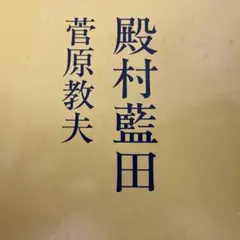 殿村藍田
菅原教夫